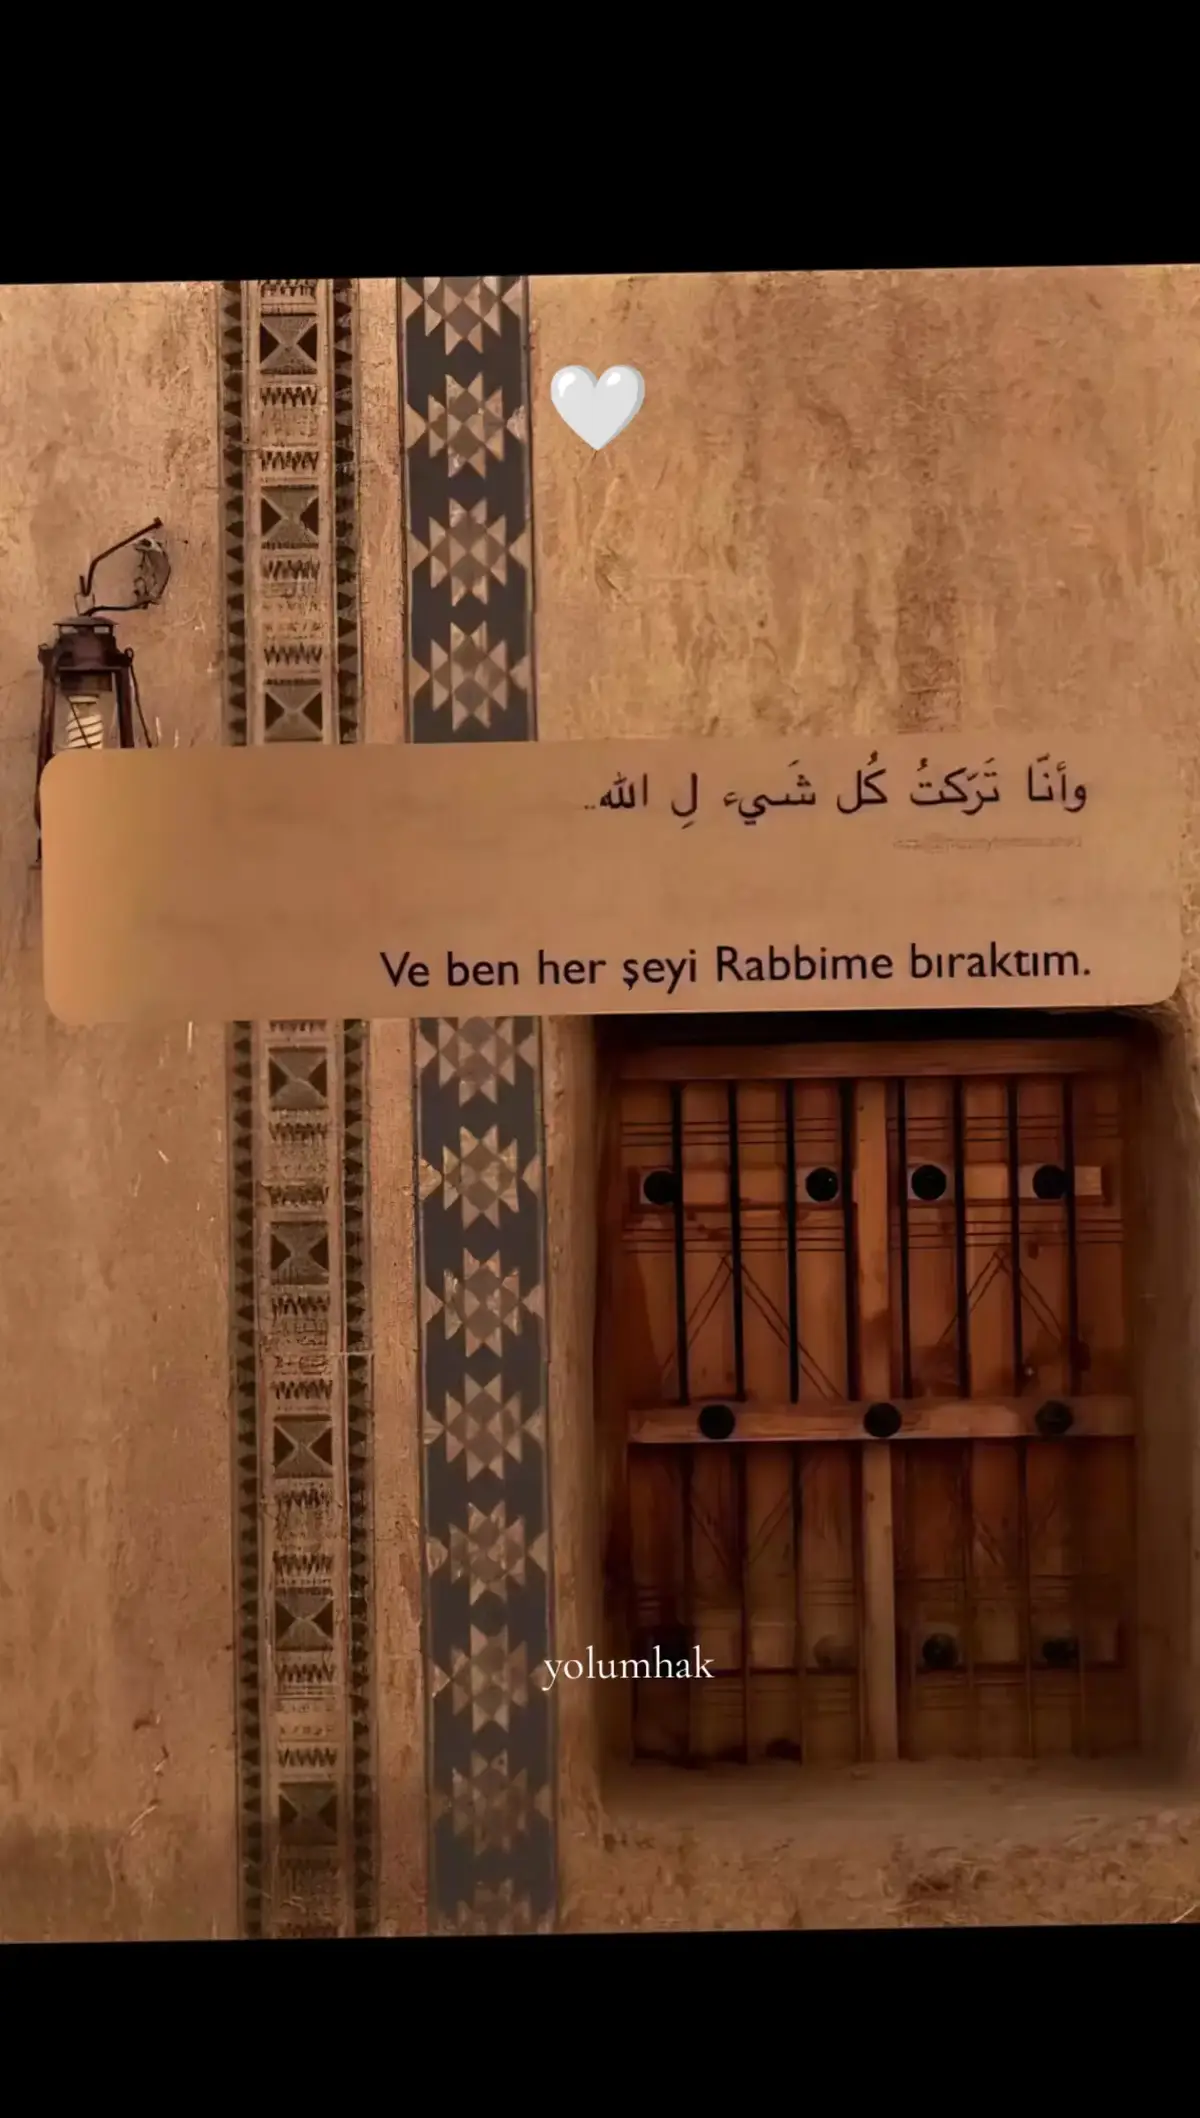 وأنّا تَرَكتُ كُل شَيء لِ الله..
Ve ben her şeyi Rabbime bıraktım.
yolumhak